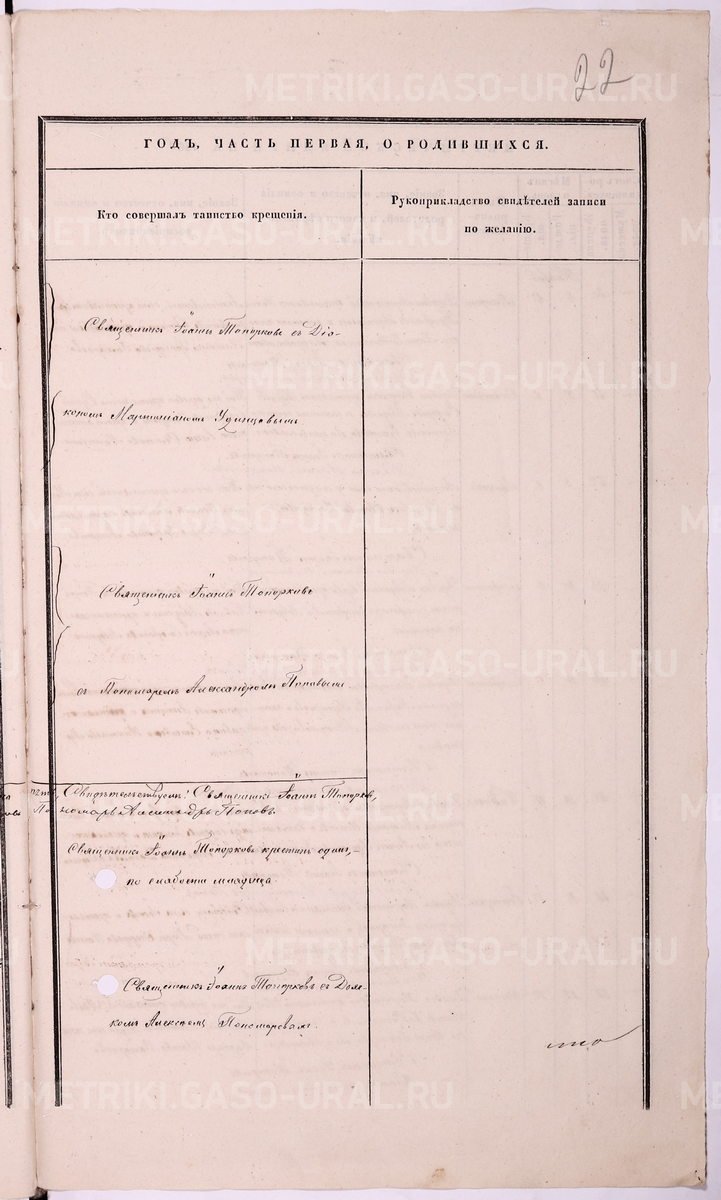 22
ГОДЪ, ЧАСТЬ ПЕРВАЯ, О РОДИВШИХСЯ.
Кто совершалъ таинство крещенія.
Рукоприкладство свидѣтелей записи
по желанію.
Священникъ Іоаннъ Топорковъ съ Діа-
кономъ Удинцовымъ
Священникъ Іоаннъ Топорковъ
съ Пономаремъ Александромъ Поповымъ
Свидѣтельствуемъ: Священникъ Іоаннъ Топорковъ,
Пономарь Александръ Поповъ.
Священникъ Іоаннъ Топорковъ крестилъ одинъ,
по слабости младенца.
Священникъ Іоаннъ Топорковъ съ
Пономаревымъ.
METRIKI.GASO-URAL.RU